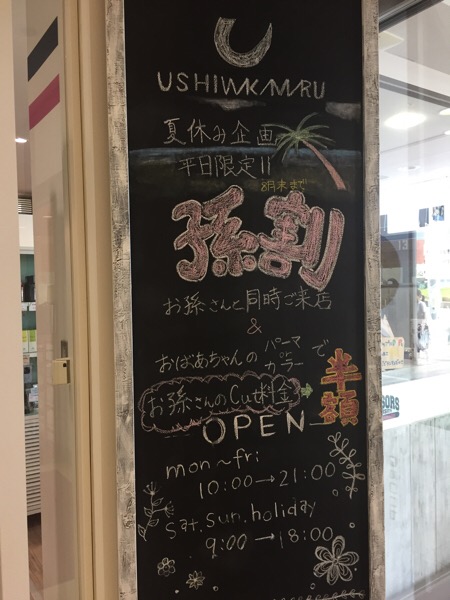 USHIWAKAMARU
夏休み企画
平日限定!!
8月末まで
孫割
お孫さんと同時ご来店
&
おばあちゃんの パーマ or カラーで
お孫さんのCut料金→半額
OPEN
mon～fri
10:00→21:00
Sat.Sun.holiday
9:00→18:00